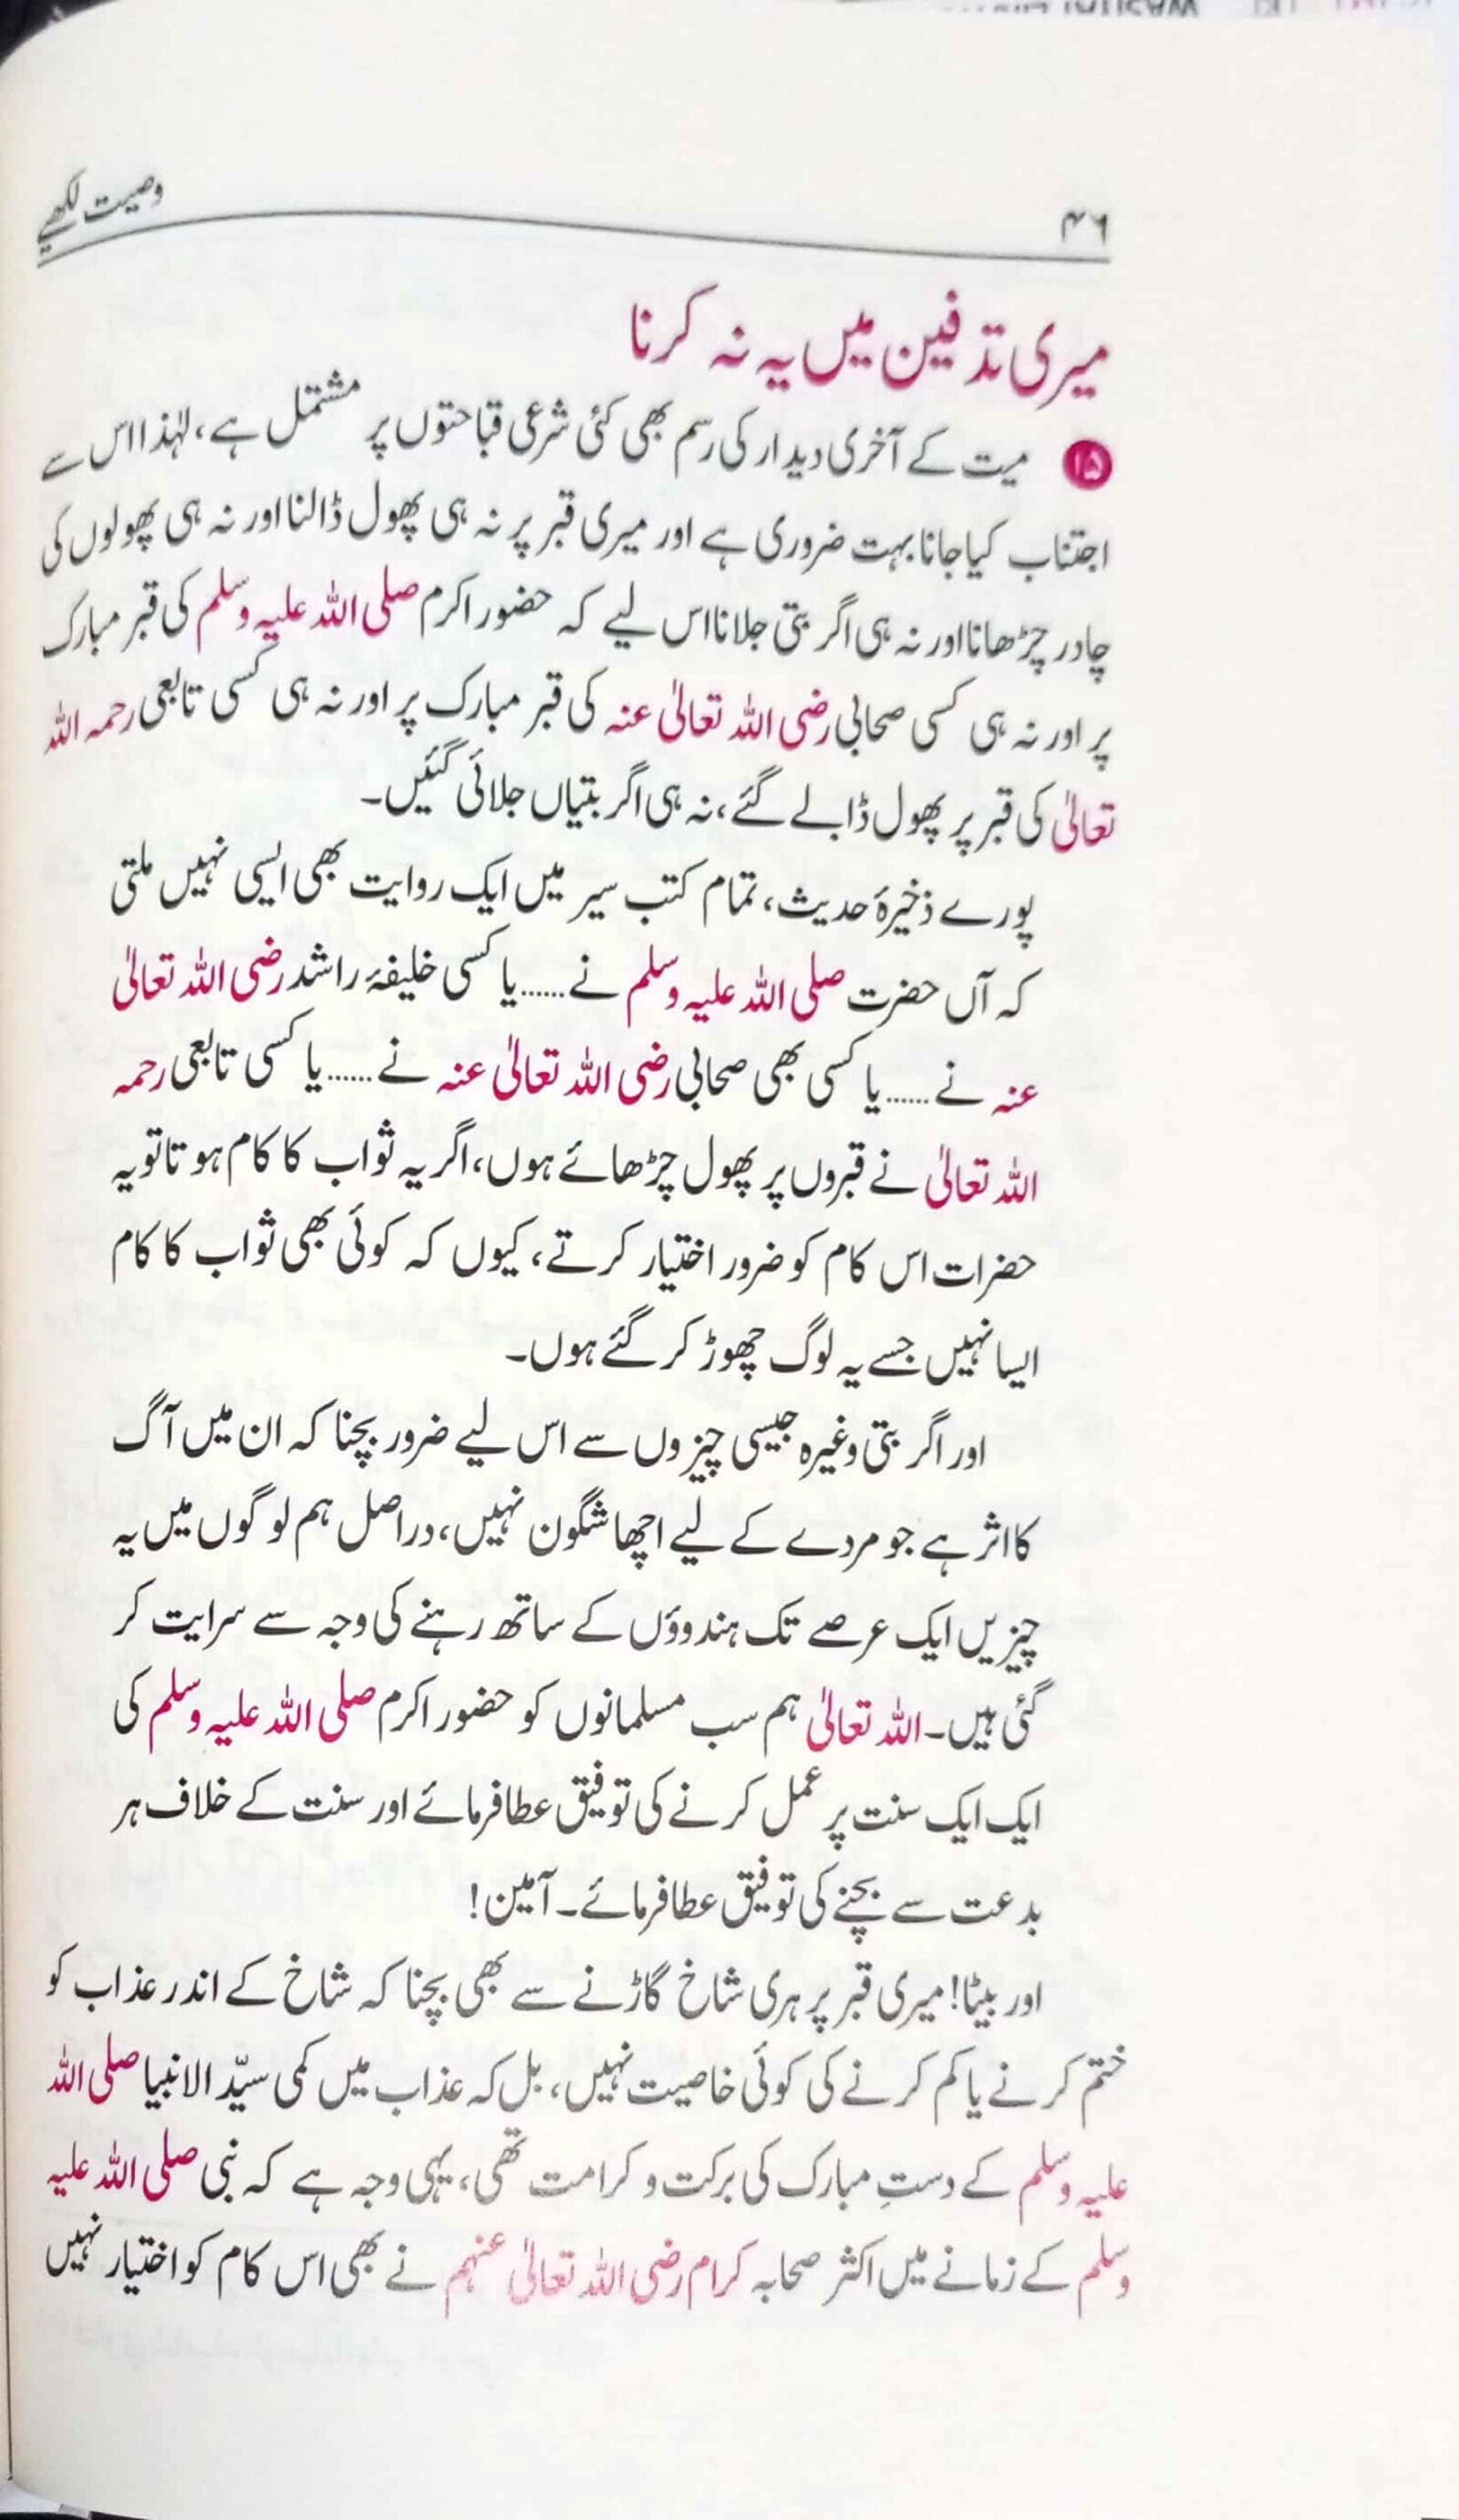 وصیت لکھیے
۴۶
میری تدفین میں یہ نہ کرنا
۱۵ میت کے آخری دیدار کی رسم بھی کئی شرعی قباحتوں پر مشتمل ہے، لہٰذا اس سے
اجتناب کیا جانا بہت ضروری ہے اور میری قبر پر نہ ہی پھول ڈالنا اور نہ ہی پھولوں کی
چادر چڑھانا اور نہ ہی اگر بتی جلانا اس لیے کہ حضور اکرم صلی اللہ علیہ وسلم کی قبر مبارک
پر اور نہ ہی کسی صحابی رضی اللہ تعالیٰ عنہ کی قبر مبارک پر اور نہ ہی کسی تابعی رحمہ اللہ
تعالیٰ کی قبر پر پھول ڈالے گئے، نہ ہی اگر بتیاں جلائی گئیں۔
پورے ذخیرۂ حدیث، تمام کتب سیر میں ایک روایت بھی ایسی نہیں ملتی
کہ آں حضرت صلی اللہ علیہ وسلم نے ...... یا کسی خلیفۂ راشد رضی اللہ تعالیٰ
عنہ نے ...... یا کسی بھی صحابی رضی اللہ تعالیٰ عنہ نے ...... یا کسی تابعی رحمہ
اللہ تعالیٰ نے قبروں پر پھول چڑھائے ہوں، اگر یہ ثواب کا کام ہوتا تو یہ
حضرات اس کام کو ضرور اختیار کرتے، کیوں کہ کوئی بھی ثواب کا کام
ایسا نہیں جسے یہ لوگ چھوڑ کر گئے ہوں۔
اور اگر بتی وغیرہ جیسی چیزوں سے اس لیے ضرور بچنا کہ ان میں آگ
کا اثر ہے جو مردے کے لیے اچھا شگون نہیں، دراصل ہم لوگوں میں یہ
چیزیں ایک عرصے تک ہندوؤں کے ساتھ رہنے کی وجہ سے سرایت کر
گئی ہیں۔ اللہ تعالیٰ ہم سب مسلمانوں کو حضور اکرم صلی اللہ علیہ وسلم کی
ایک ایک سنت پر عمل کرنے کی توفیق عطا فرمائے اور سنت کے خلاف ہر
بدعت سے بچنے کی توفیق عطا فرمائے۔ آمین!
اور بیٹا! میری قبر پر ہری شاخ گاڑنے سے بھی بچنا کہ شاخ کے اندر عذاب کو
ختم کرنے یا کم کرنے کی کوئی خاصیت نہیں، بل کہ عذاب میں کمی سیّد الانبیا صلی اللہ
علیہ وسلم کے دستِ مبارک کی برکت و کرامت تھی، یہی وجہ ہے کہ نبی صلی اللہ علیہ
وسلم کے زمانے میں اکثر صحابہ کرام رضی اللہ تعالیٰ عنہم نے بھی اس کام کو اختیار نہیں